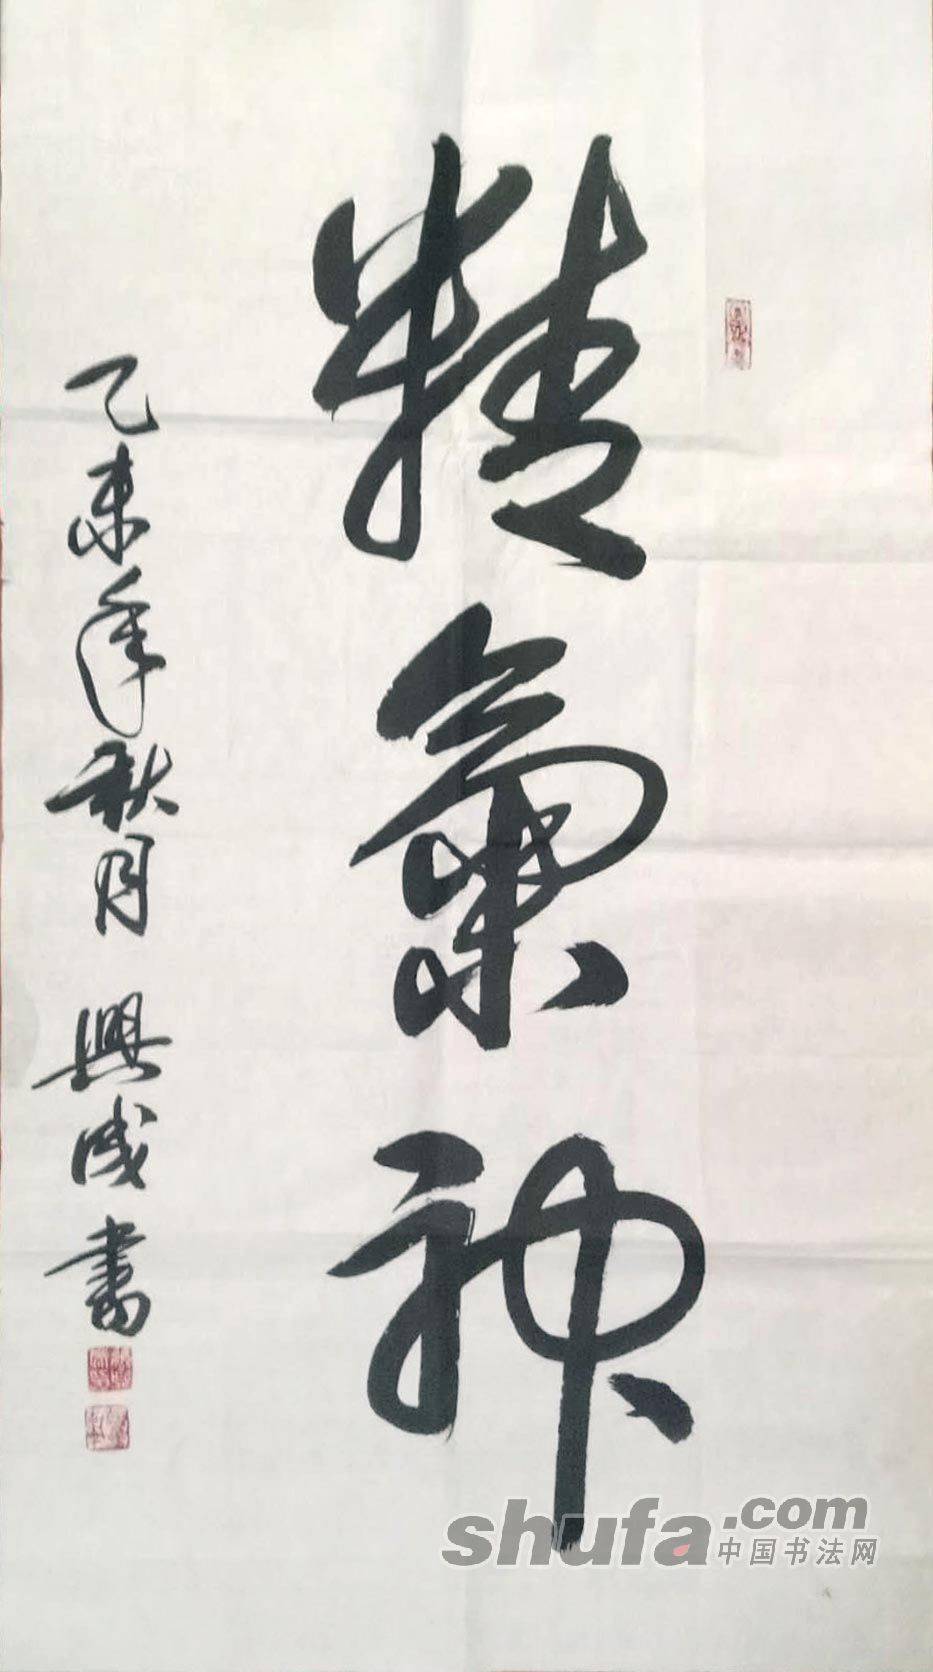 精氣神
乙未年秋月 興成書
shufa.com
中国书法网